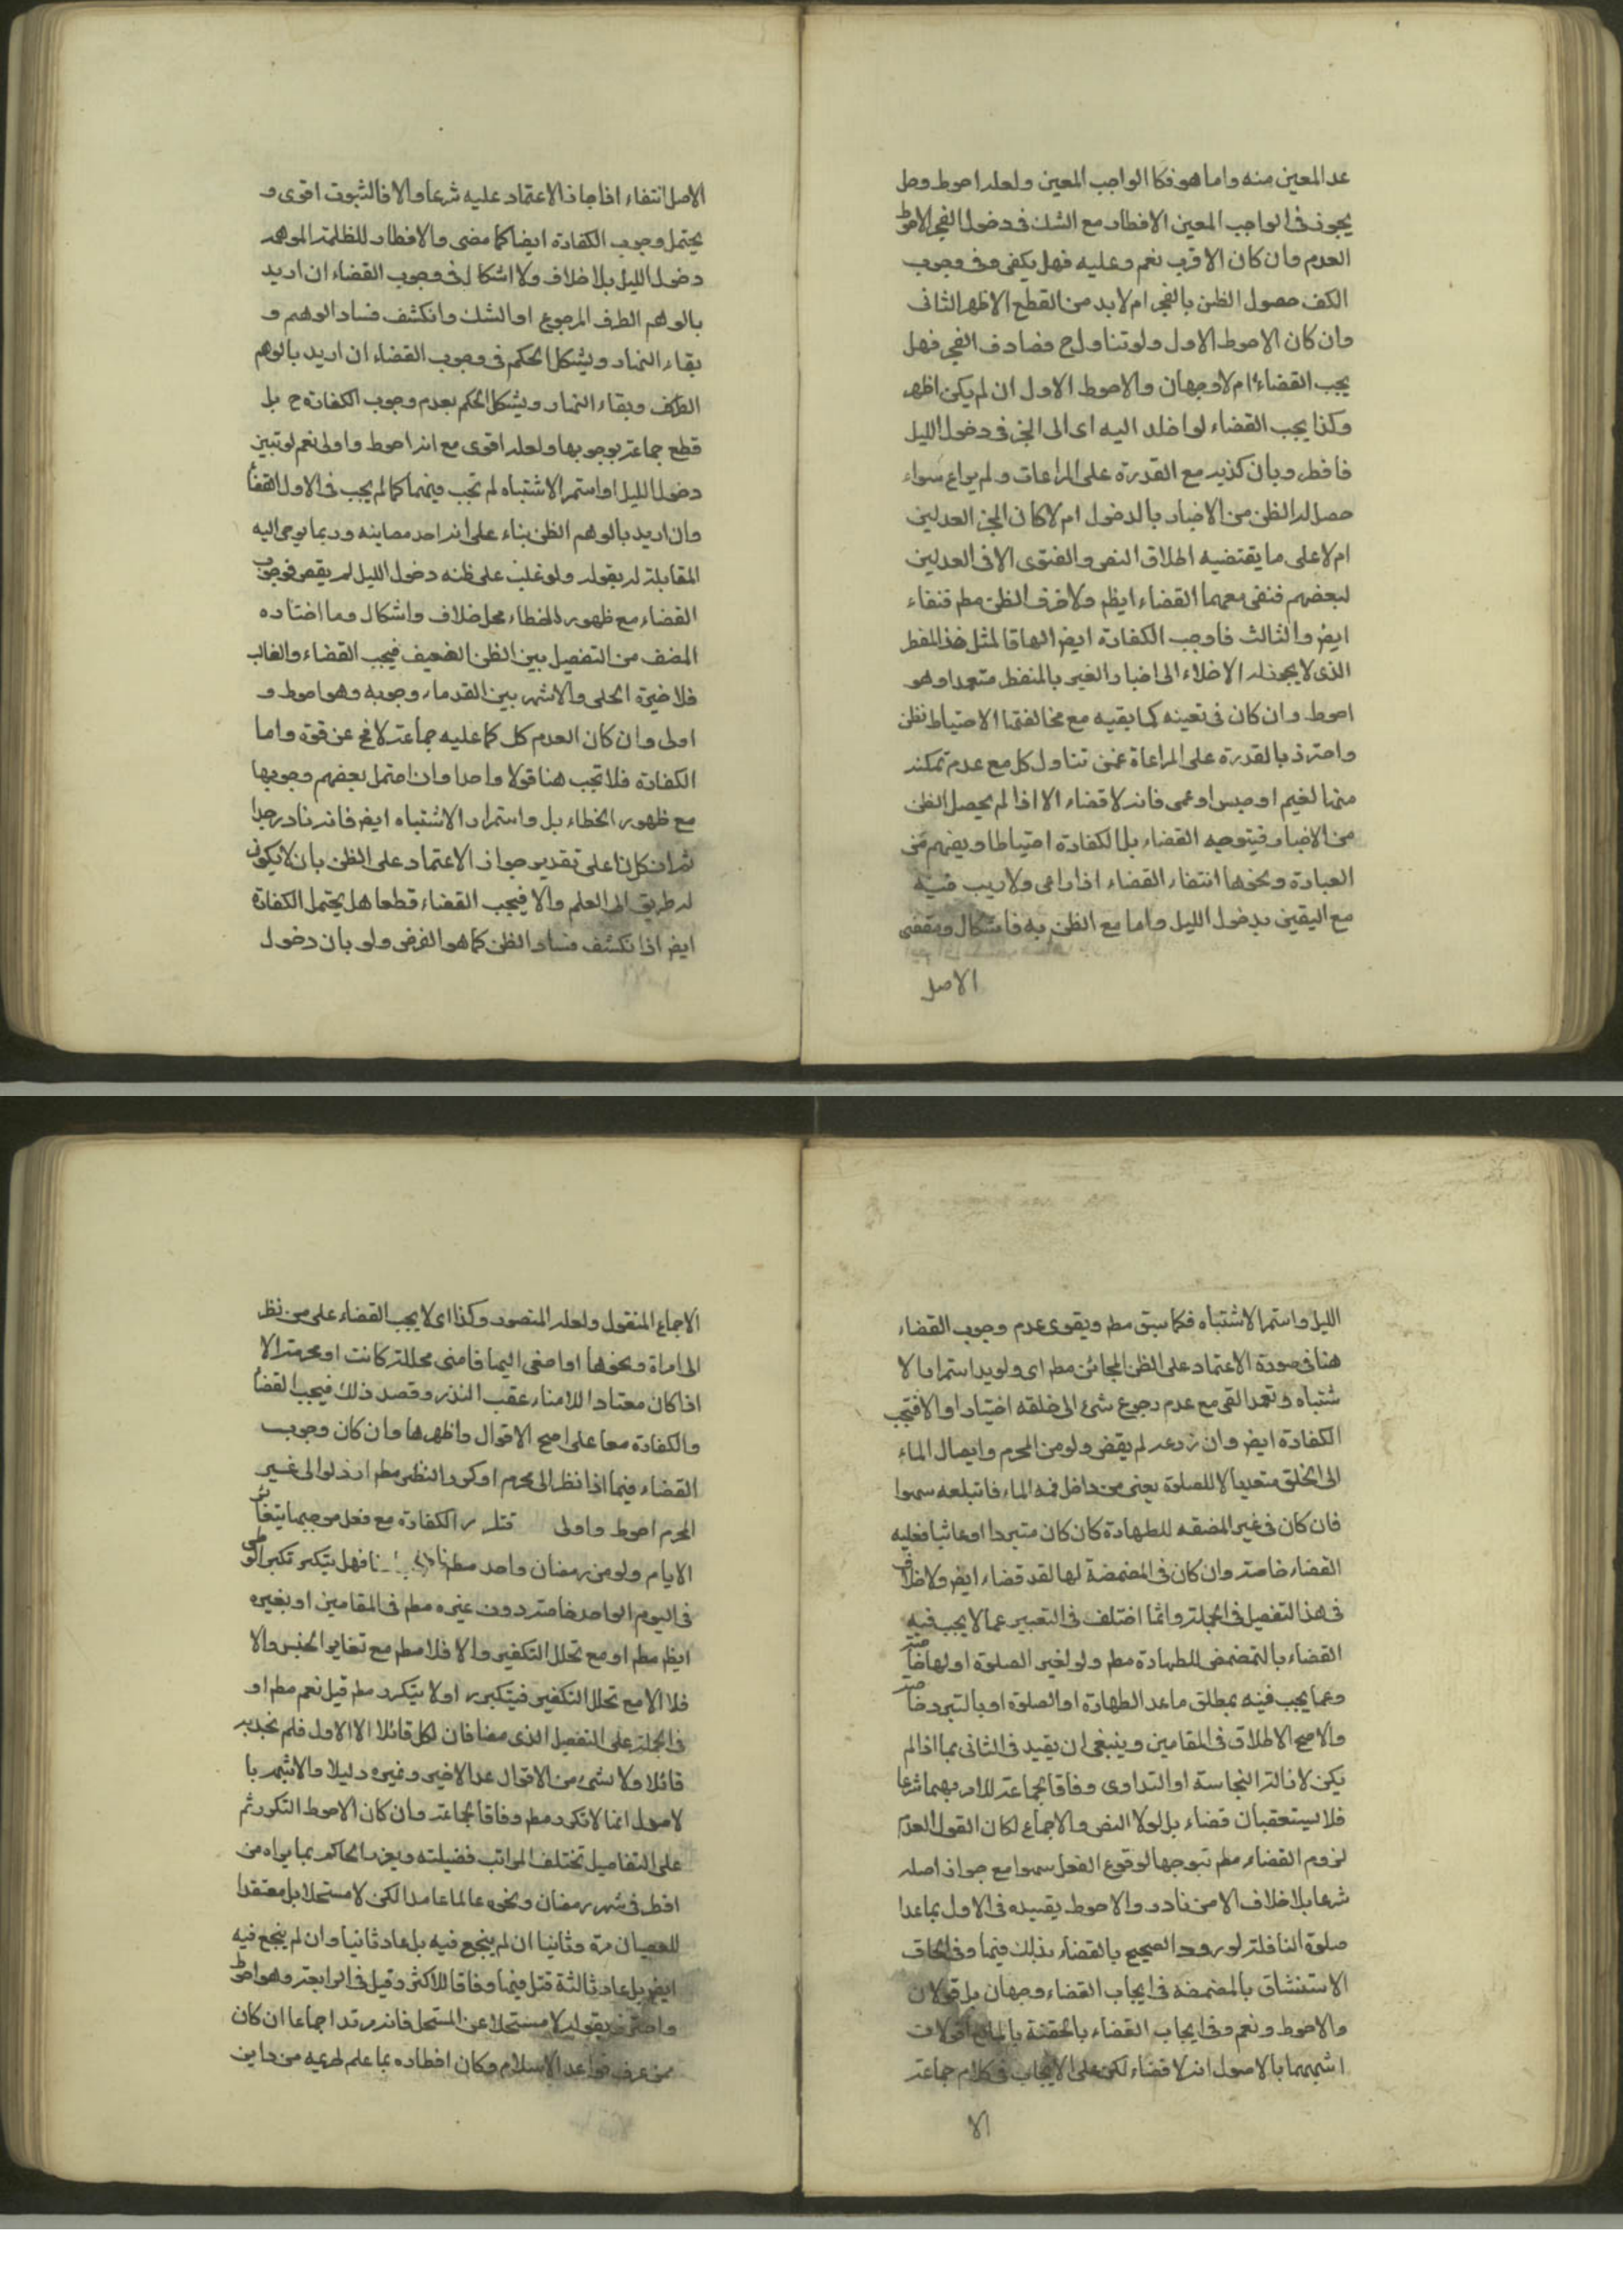 عدا المعين منه واما هو فكا الواجب المعين ولعله احوط وهل
يجوز فى الواجب المعين الافطار مع الشك فى دخول الفجر الاحوط
العدم وان كان الاقرب نعم وعليه فهل يكفى فى وجوب
الكف حصول الظن بالفجر ام لا بد من القطع الاظهر الثانى
وان كان الاحوط الاول ولو تناول ح فصادف الفجر فهل
يجب القضاء ام لا وجهان والاحوط الاول ان لم يكن اظهر
وكذا يجب القضاء لو اخلد اليه اى الى المخبر فى دخول الليل
فافطر وبان كذبه مع القدرة على المراعات ولم يراع سواء
حصل له الظن من الاخبار بالدخول ام لا كان المخبر العدلين
ام لا على ما يقتضيه اطلاق النص والفتوى الا فى العدلين
لبعضهم فنفى معهما القضاء ايظم ولاخر فى الظن مطم فنفاه
ايضر والثالث فاوجب الكفارة ايضر الحاقا لمثل هذا المفطر
الذى لا يجوز له الاخلاء الى اخبار الغير بالمفطر متعمدا وهو
احوط وان كان فى تعينه كما بقيه مع مخالفتها الاحتياط نظر
واحترز بالقدرة على المراعاة عمن تناول كل مع عدم تمكنه
منها لغيم او حبس او عمى فانه لا قضاء الا اذا لم يحصل الظن
من الاخبار فيتوجه القضاء بل الكفارة احتياطا ويفهم من
العبارة ونحوها انتفاء القضاء اذا راعى ولا ريب فيه
مع اليقين بدخول الليل واما مع الظن به فاشكال ومقتضى
الاصل
الاصل انتفاء اذا جاز الاعتماد عليه شرعا والا فالثبوت اقوى و
يحتمل وجوب الكفارة ايضا كما مضى والافطار للظلمة الموهمة
دخول الليل بلا خلاف ولا اشكال فى وجوب القضاء ان اريد
بالوهم الطرف المرجوع او الشك وانكشف فساد الوهم و
بقاء النهار ويشكل الحكم فى وجوب القضاء ان اريد بالوهم
وبقاء النهار ويشكل الحكم بعدم وجوب الكفارة ح بل
قطع جماعة بوجوبها ولعله اقوى مع انه احوط واولى نعم لو تبين
دخول الليل او استمر الاشتباه لم تجب فيهما كما لم يجب فى الاول القضا
وان اريد بالوهم الظن بناء على انه احد معاينه وربما يومى اليه
المقابلة له بقوله ولو غلب على ظنه دخول الليل لم يقض فوجوب
القضاء مع ظهور الخطاء محل خلاف واشكال وما اختاره
المصنف من التفصيل بين الظن الضعيف فيجب القضاء والغالب
فلا خيرة الحلى والاشهر بين القدماء وجوبه وهو احوط و
اولى وان كان العدم كل كما عليه جماعة لا يخ عن قوة واما
الكفارة فلا تجب هنا قولا واحدا وان احتمل بعضهم وجوبها
مع ظهور الخطاء بل واستمرار الاشتباه ايضر فانه نادر جدا
ثم ان كل ذا على تقدير جواز الاعتماد على الظن بان لا يكون
له طريق الى العلم والا فيجب القضاء قطعا هل يحتمل الكفارة
ايضر اذا انكشف فساد الظن كما هو الفرض ولو بان دخول
الليل واستمر الاشتباه فكما سبق مطم ويقوى عدم وجوب القضاء
هنا فى صورة الاعتماد على الظن الجائز مطم اى ولو بد استمرا ما لا
شتباه وتعمد القى مع عدم رجوع شئ الى خلقه اختيارا والا فتجب
الكفارة ايضر وان ذرعه لم يقض ولو من المحرم وايصال الماء
الى الخلق متعديا لا للصلوة يعنى من داخل فمه الماء فابتلعه سهوا
فان كان فى غير المضقه للطهارة كان كان متبردا او عابثا فعليه
القضاء خاصة وان كان فى المضمضة لها لقد قضاء ايضر ولا خلاف
فى هذا التفصيل فى الجملة وانما اختلف فى التعبير عما لا يجب فيه
القضاء بالتمضمض للطهارة مطم ولو لغير الصلوة او لها خاصة
وعما يجب فيه بمطلق ما عد الطهارة او الصلوة او بالتبرد خاصة
والاصح الاطلاق فى المقامين وينبغى ان يقيد فى الثانى بما اذا لم
يكن لازالة النجاسة او التداوى وفاقا لجماعة للامر بهما شرعا
فلا يستعقبان قضاء بل لولا النص والاجماع لكان القول العدم
لزوم القضاء مطم تبوجها لوقوع الفعل سهوا مع جواز اصله
شرعا بلا خلاف الا من نادر والاحوط يقيده فى الاول بما عدا
صلوة النافلة لورود الصحيح بالقضاء بذلك فيها وفى الحاق
الاستنشاق بالمضمضة فى ايجاب القضاء وجهان بل قولان
والاحوط ونعم وفى ايجاب القضاء بالحقنة بالمايع قولان
اشبههما بالاصول انه لا قضاء لكن على الايجاب فى كلام جماعة
الا
الاجماع المنقول ولعله المنصور وكذا اى لا يجب القضاء على من نظر
الى امراة ونحوها او اصغى اليها فامنى محللة كانت او محرمة الا
اذا كان معتادا للامناء عقب النذر وقصد ذلك فيجب القضا
والكفارة معا على اصح الاقوال واظهرها وان كان وجوب
القضاء فيما اذا نظر الى محرم او كرر النظر مطم اذ لو الى غير
المحرم احوط واولى الكفارة مع فعل موجبها
الايام ولو من رمضان واحد مطم فهل يتكرر
فى اليوم الواحد خاصة دون غيره مطم فى المقامين او بغيره
ايظم مطم او مع تحلل التكفير والا فلا مطم مع تغاير الجنس والا
فلا الا مع تحلل التكفير فيتكرر او لا يتكرر مطم قيل نعم مطم او
فى الجملة على التفصيل الذى مضا فان لكل قائلا الا الاول فلم نجد به
قائلا ولا شئ من الاقوال عدا الاخير وغيره دليلا والاشهر با
لاصول انها لا تكرر مطم وفاقا لجماعة وان كان الاحوط التكرر ثم
على التفاصيل تختلف المراتب فضيلته ويعزر الحاكم بما يراه من
افطر فى شهر رمضان ونحوه عالما عامدا لكن لا مستحلا بل معتقدا
للعصيان مرة وثانيا ان لم ينجع فيه بل عاد ثانيا وان لم ينجع فيه
ايضر بل عاد ثالثة قتل فيها وفاقا للاكثر وقيل فى الرابعة وهو احوط
واحترز بقوله لا مستحلا عن المستحل فانه مرتد اجماعا ان كان
ممن عرف قواعد الاسلام وكان افطاره بما علم تحريمه من دين